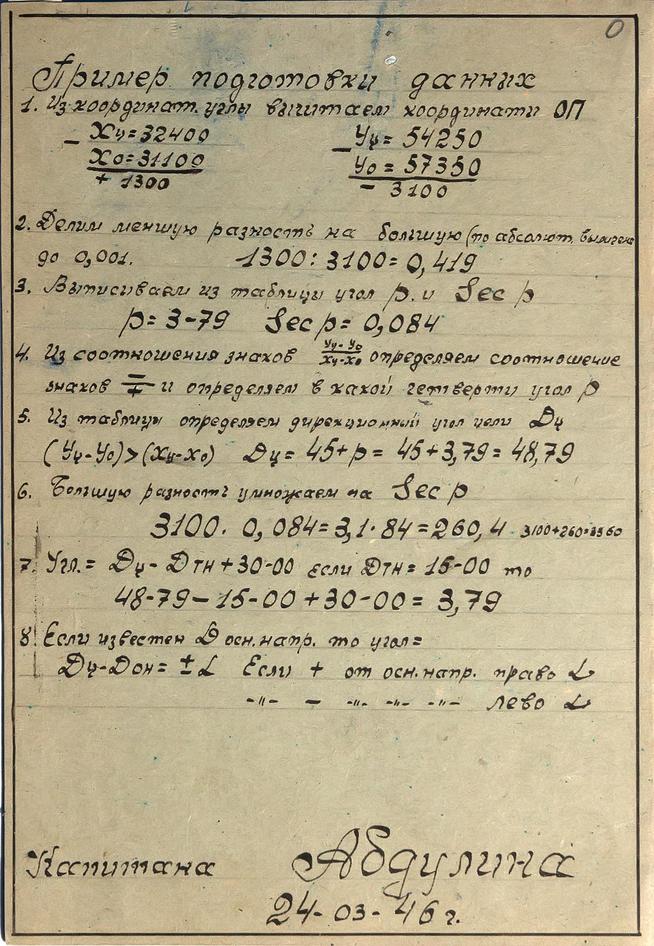 0
Пример подготовки данних
1. Из координат. углы вычитаем координати ОП
– Xц=32400 – Yц= 54250
Xо=31100 Yо= 57350
+ 1300 – 3100
2. Делим меншую разность на большую (по абсолют.
до 0,001. 1300:3100=0,419
3. Выписиваем из таблици угол р. и Sec р
р= 3-79 Sec р= 0,084
4. Из соотношения знаков Yц-Yо/Xц-Xо определяем соотношение
знаков –/+ и определяем в какой гетверти угол р
5. Из таблици определяем дирекционный угол цели Dц
(Yц-Yо)>(Xц-Xо) Dц= 45+р= 45+3,79= 48,79
6. Большую разность умножаем на Sec р
3100. 0,084=3,1·84=260,4 3100+260=3360
7. Угл.= Dц-Dтн+30-00 если Dтн= 15-00 то
48-79-15-00+30-00= 3,79
8. Если известен D осн.напр. то угол=
Dц-Dон= ±L Если + от осн.напр. право L
-"- – -"- -"- -"- лево L
Капитана Абдулина
24-03-46 г.